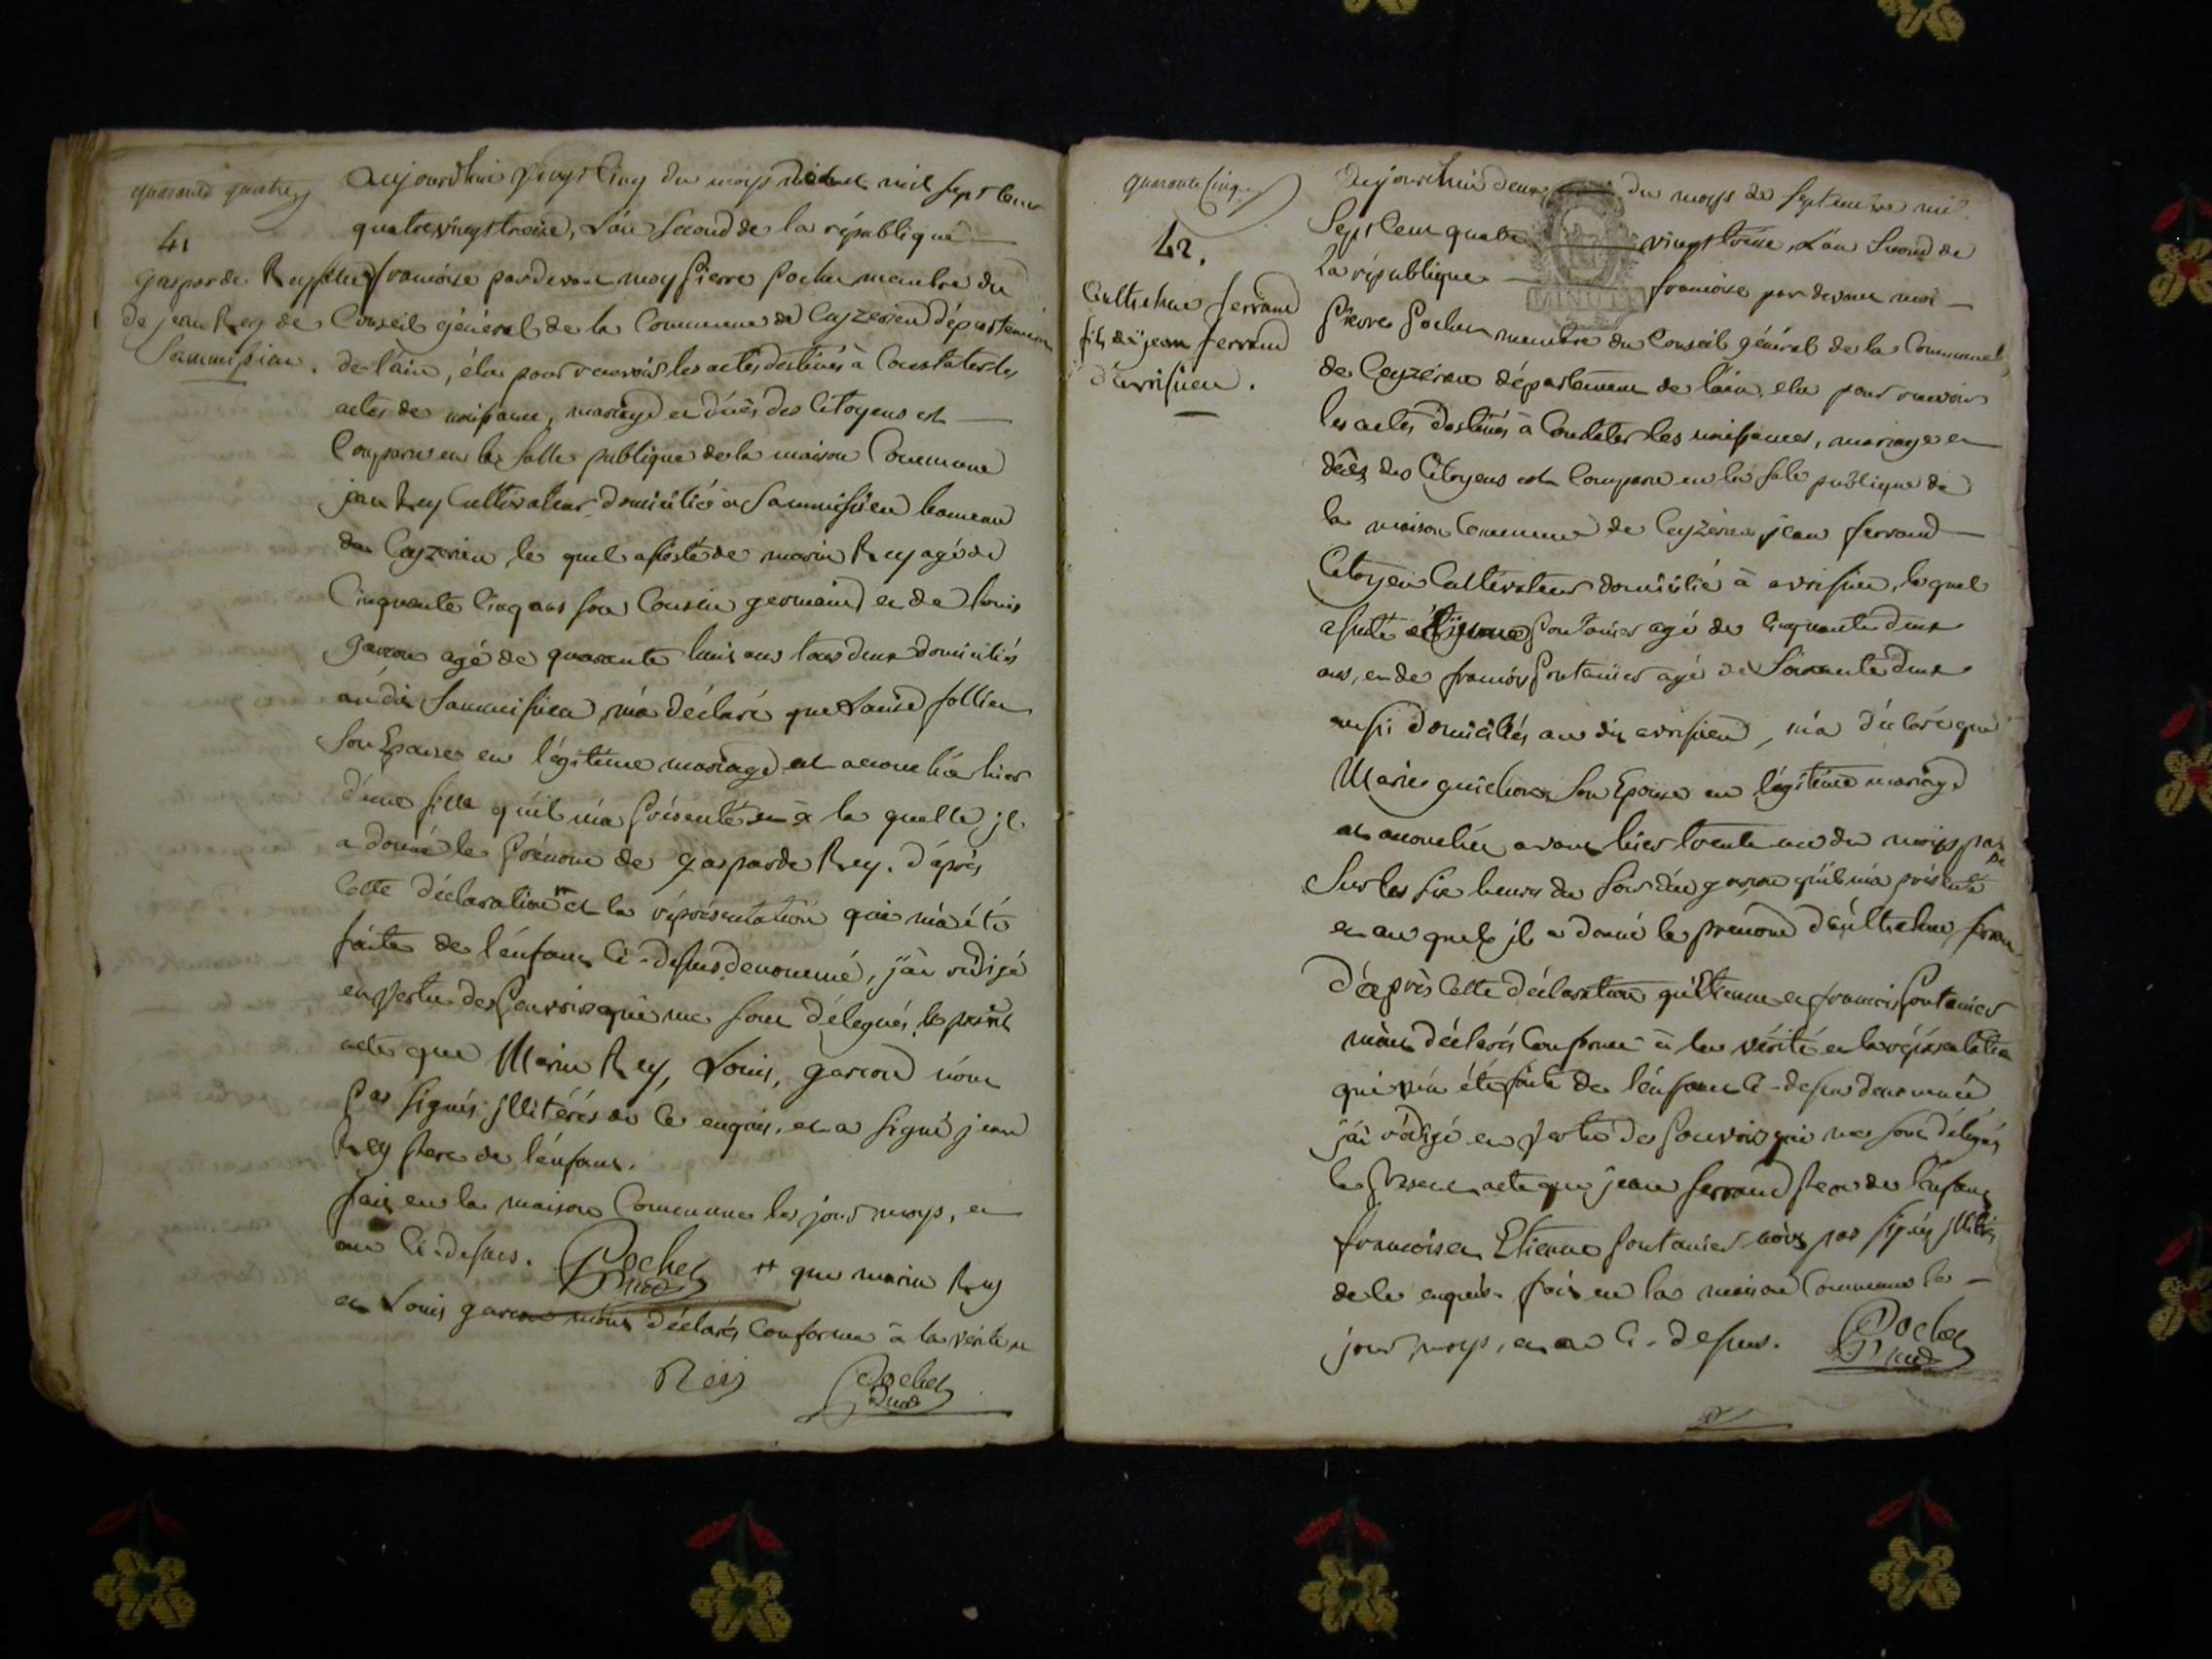 quarante quatre
41
gasparde Rey fille
de jean Rey de
Sammissiau.
aujourdhui vingt cinq du moys mil sept cent
quatre vingt treize, L'an Second de la république
francoise pardevant moy pierre pochet membre du
Conseil général de la Commune de Ceyzerieu département
de l'ain, élu pour recevoir les actes destinés à Constater les
actes de naissance, mariage et décès des Citoyens est
Comparu en la Salle publique de la maison Commune
jean Rey Cultivateur domicilié a Sammissieu hameau
de Ceyzerieu le quel assisté de marin Rey agé de
Cinquante Cinq ans son Cousin germain et de Louis
garcon agé de quarante huit ans tous deux domiciliés
au dit Sammissieu, m'a déclaré que Louise follies
Son Epouse en légitime mariage est accouchée hier
d'une fille qu'il m'a présenté à la quelle jl
a donné le prénom de gasparde Rey. d'après
Cette déclaration ++ et la réprésentation qui m'a été
faite de l'enfant Ci-dessus denommé, j'ai rédigé
en vertu des pouvoirs qui me sont délégués le présent
acte que Marin Rey, Louis, garcon n'ont
pas signés jllitérés de ce enquis, et a signé jean
Rey pere de l'enfant.
fait en la maison Commune les jour moys, et
an Ci-dessus. Pochet
++ que marin Rey
et Louis garcon m'ont déclarés Conforme à la vérité et
Reÿ Pochet
quarante Cinq
42.
ferrand
fils de jean ferrand
d'avrissieu.
Aujourdhui deux du moys de Septembre mil
Sept Cent quatre vingt treize, L'an Second de
La république francoise par devant moi
MINUTE
Pierre Pochet membre du Conseil général de la Commune
de Ceyzérieu département de l'ain, elu pour recevoir
les actes destinés à Constater les naissances, mariage et
décès des Citoyens est Comparu en la sale publique de
la maison Commune de Ceyzérieu jean ferrand
Citoyen Cultivateur domicilié à avrissieu, le quel
assisté d'Etienne pontanier agé de Cinquante deux
ans, et de francois pontanier agé de Soixante deux
aussi domiciliés au dit avrissieu, m'a déclaré que
Marie guichon Son Epouse en légitime mariage
est accouchée avant hier trente un du moys passé
Sur les Six heures du Soir d'un garcon qu'il m'a présenté
et au quel jl a donné le prénom
D'après Cette déclaration qu'Etienne et francois pontanier
m'ont déclarés Conforme à la vérité et la réprésentation
qui m'a été faite de l'enfant Ci-dessus denommé
j'ai rédigé en vertu des pouvoirs qui me sont délégués
le présent acte que jean ferrand pere de l'enfant
francois et Etienne pontanier n'ont pas signés jllitérés
de ce enquis. fait en la maison Commune les
jour moys, et an Ci-dessus. Pochet